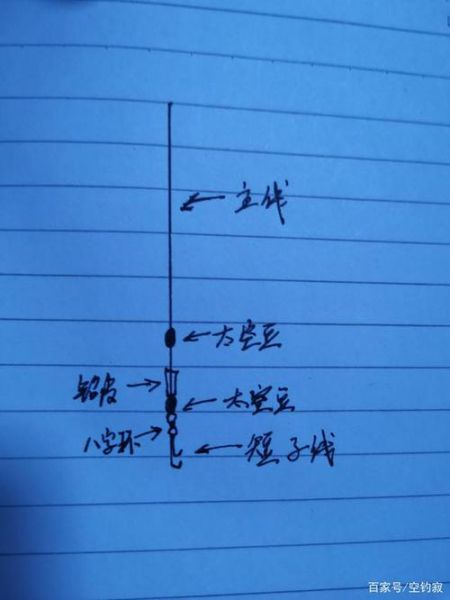 主线
太空豆
铅皮
太空豆
八字环
短子线
百家号/空钓寂